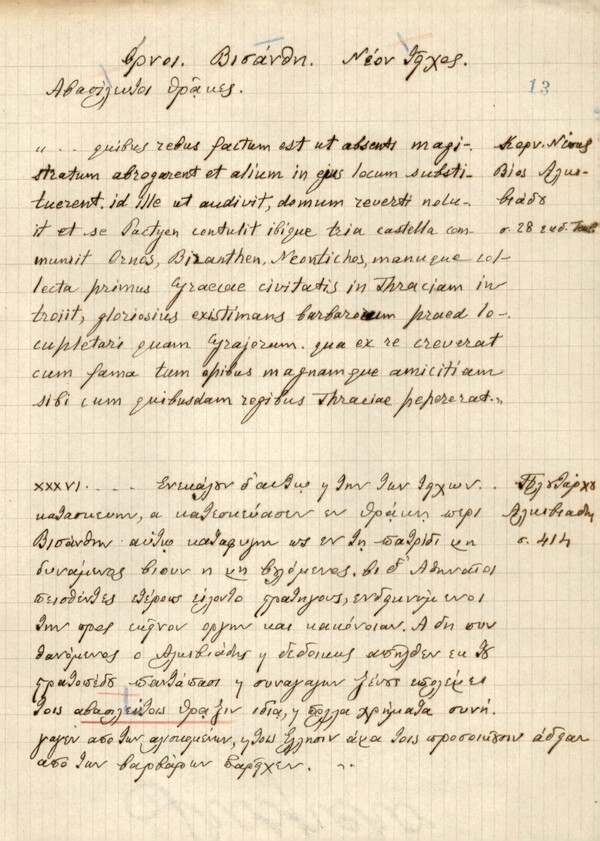 Ορνοι. Βισάνθη. Νέον Τεῖχος.
Αβασίλευτοι Θρᾷκες.
13
„ . . quibus rebus factum est ut absenti magi-
stratum abrogarent et alium in ejus locum substi-
tuerent. id ille ut audivit, domum reverti nolu-
it et se Pactyen contulit ibique tria castella com-
muniit Ornos, Bizanthen, Neontichos, manuque col-
lecta primus Graeciae civitatis in Thraciam in
troiit, gloriosius existimans barbarorum praed lo-
cupletari quam Grajorum. qua ex re creverat
cum fama tum opibus magnamque amicitiam
sibi cum quibusdam regibus Thraciae pepererat.„
Κορν. Νέπως
Βίος Αλκι-
βιάδου
σ. 28 εκδ.
XXXVI. . . . . Ενεκάλουν δ' αυτῳ ϗ την των τειχων . .
κατασκευην, α κατεσκεύασεν εν Θρᾴκῃ περι
Βισάνθην αυτῳ καταφυγην ως εν τῃ πατρίδι μη
δυνάμενος βιουν η μη βουλόμενος. οι δ' Αθηναῖοι
πεισθέντες ετέρους είλοντο στρατηγους, ενδεικνύμενοι
την προς εκεῖνον οργην και κακόνοιαν. Α δη πυν
θανόμενος ο Αλκιβιάδης ϗ δεδοικως απηλθεν εκ του
στρατοπέδου παντάπασι ϗ συναγαγων ξένους επολέμει
τοις αβασιλεύτοις Θρᾳξιν ιδίᾳ, ϗ πολλα χρήματα συνή
γαγεν απο των αλισκομένων, ϗ τοις Ελλησιν άμα τοις προσοικουσιν άδειαν
απο των βαρβάρων παρεῖχεν. „
Πλουτάρχου
Αλκιβιάδης
σ. 414